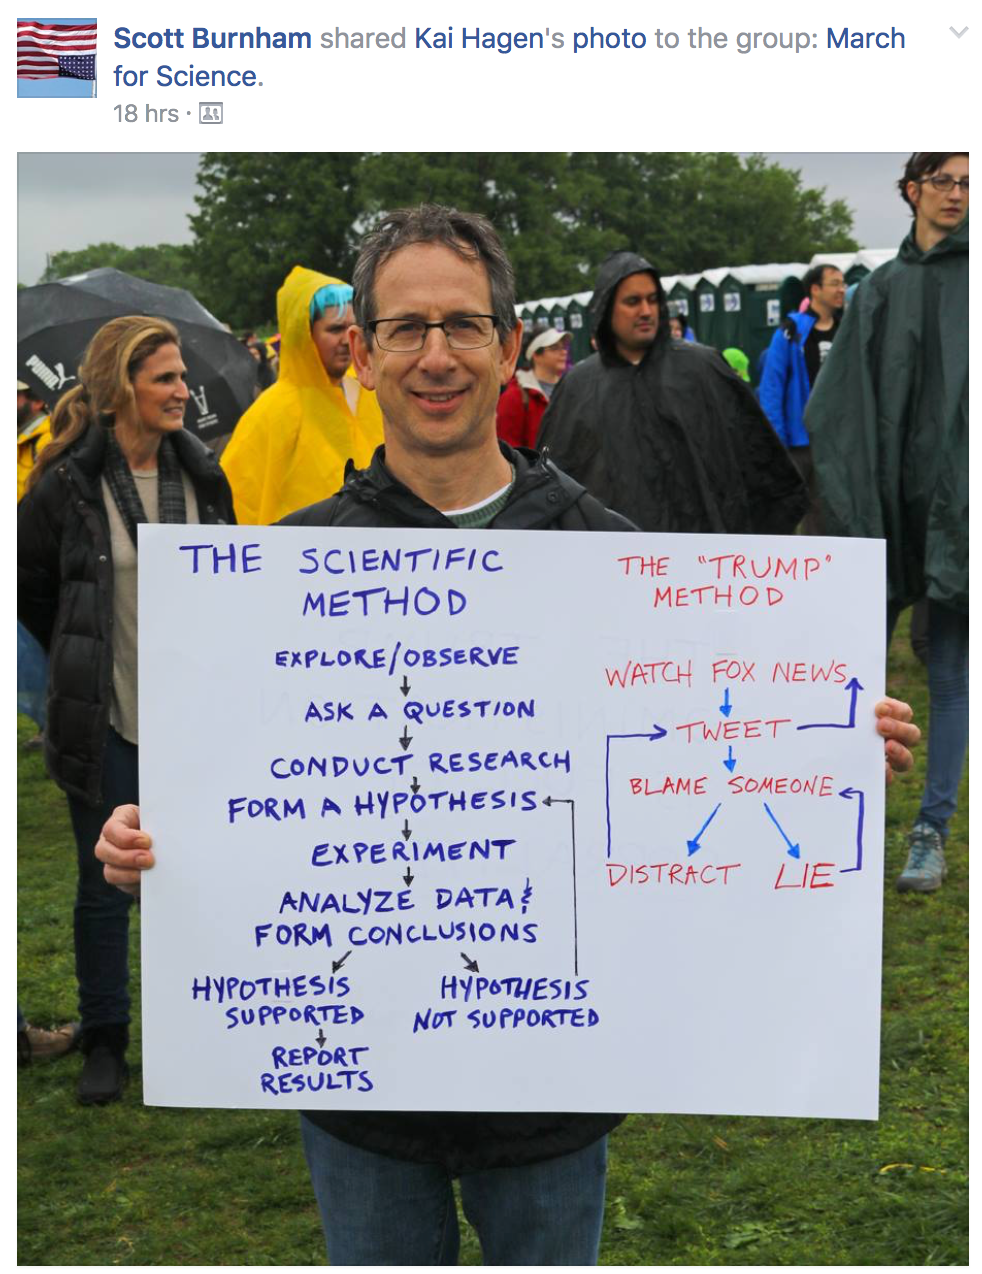 Scott Burnham shared Kai Hagen's photo to the group: March
for Science.
18 hrs ·
PUMA
THE SCIENTIFIC
METHOD
EXPLORE/OBSERVE
ASK A QUESTION
CONDUCT RESEARCH
FORM A HYPOTHESIS
EXPERIMENT
ANALYZE DATA &
FORM CONCLUSIONS
HYPOTHESIS
SUPPORTED
HYPOTHESIS
NOT SUPPORTED
REPORT
RESULTS
THE "TRUMP"
METHOD
WATCH FOX NEWS
TWEET
BLAME SOMEONE
DISTRACT
LIE